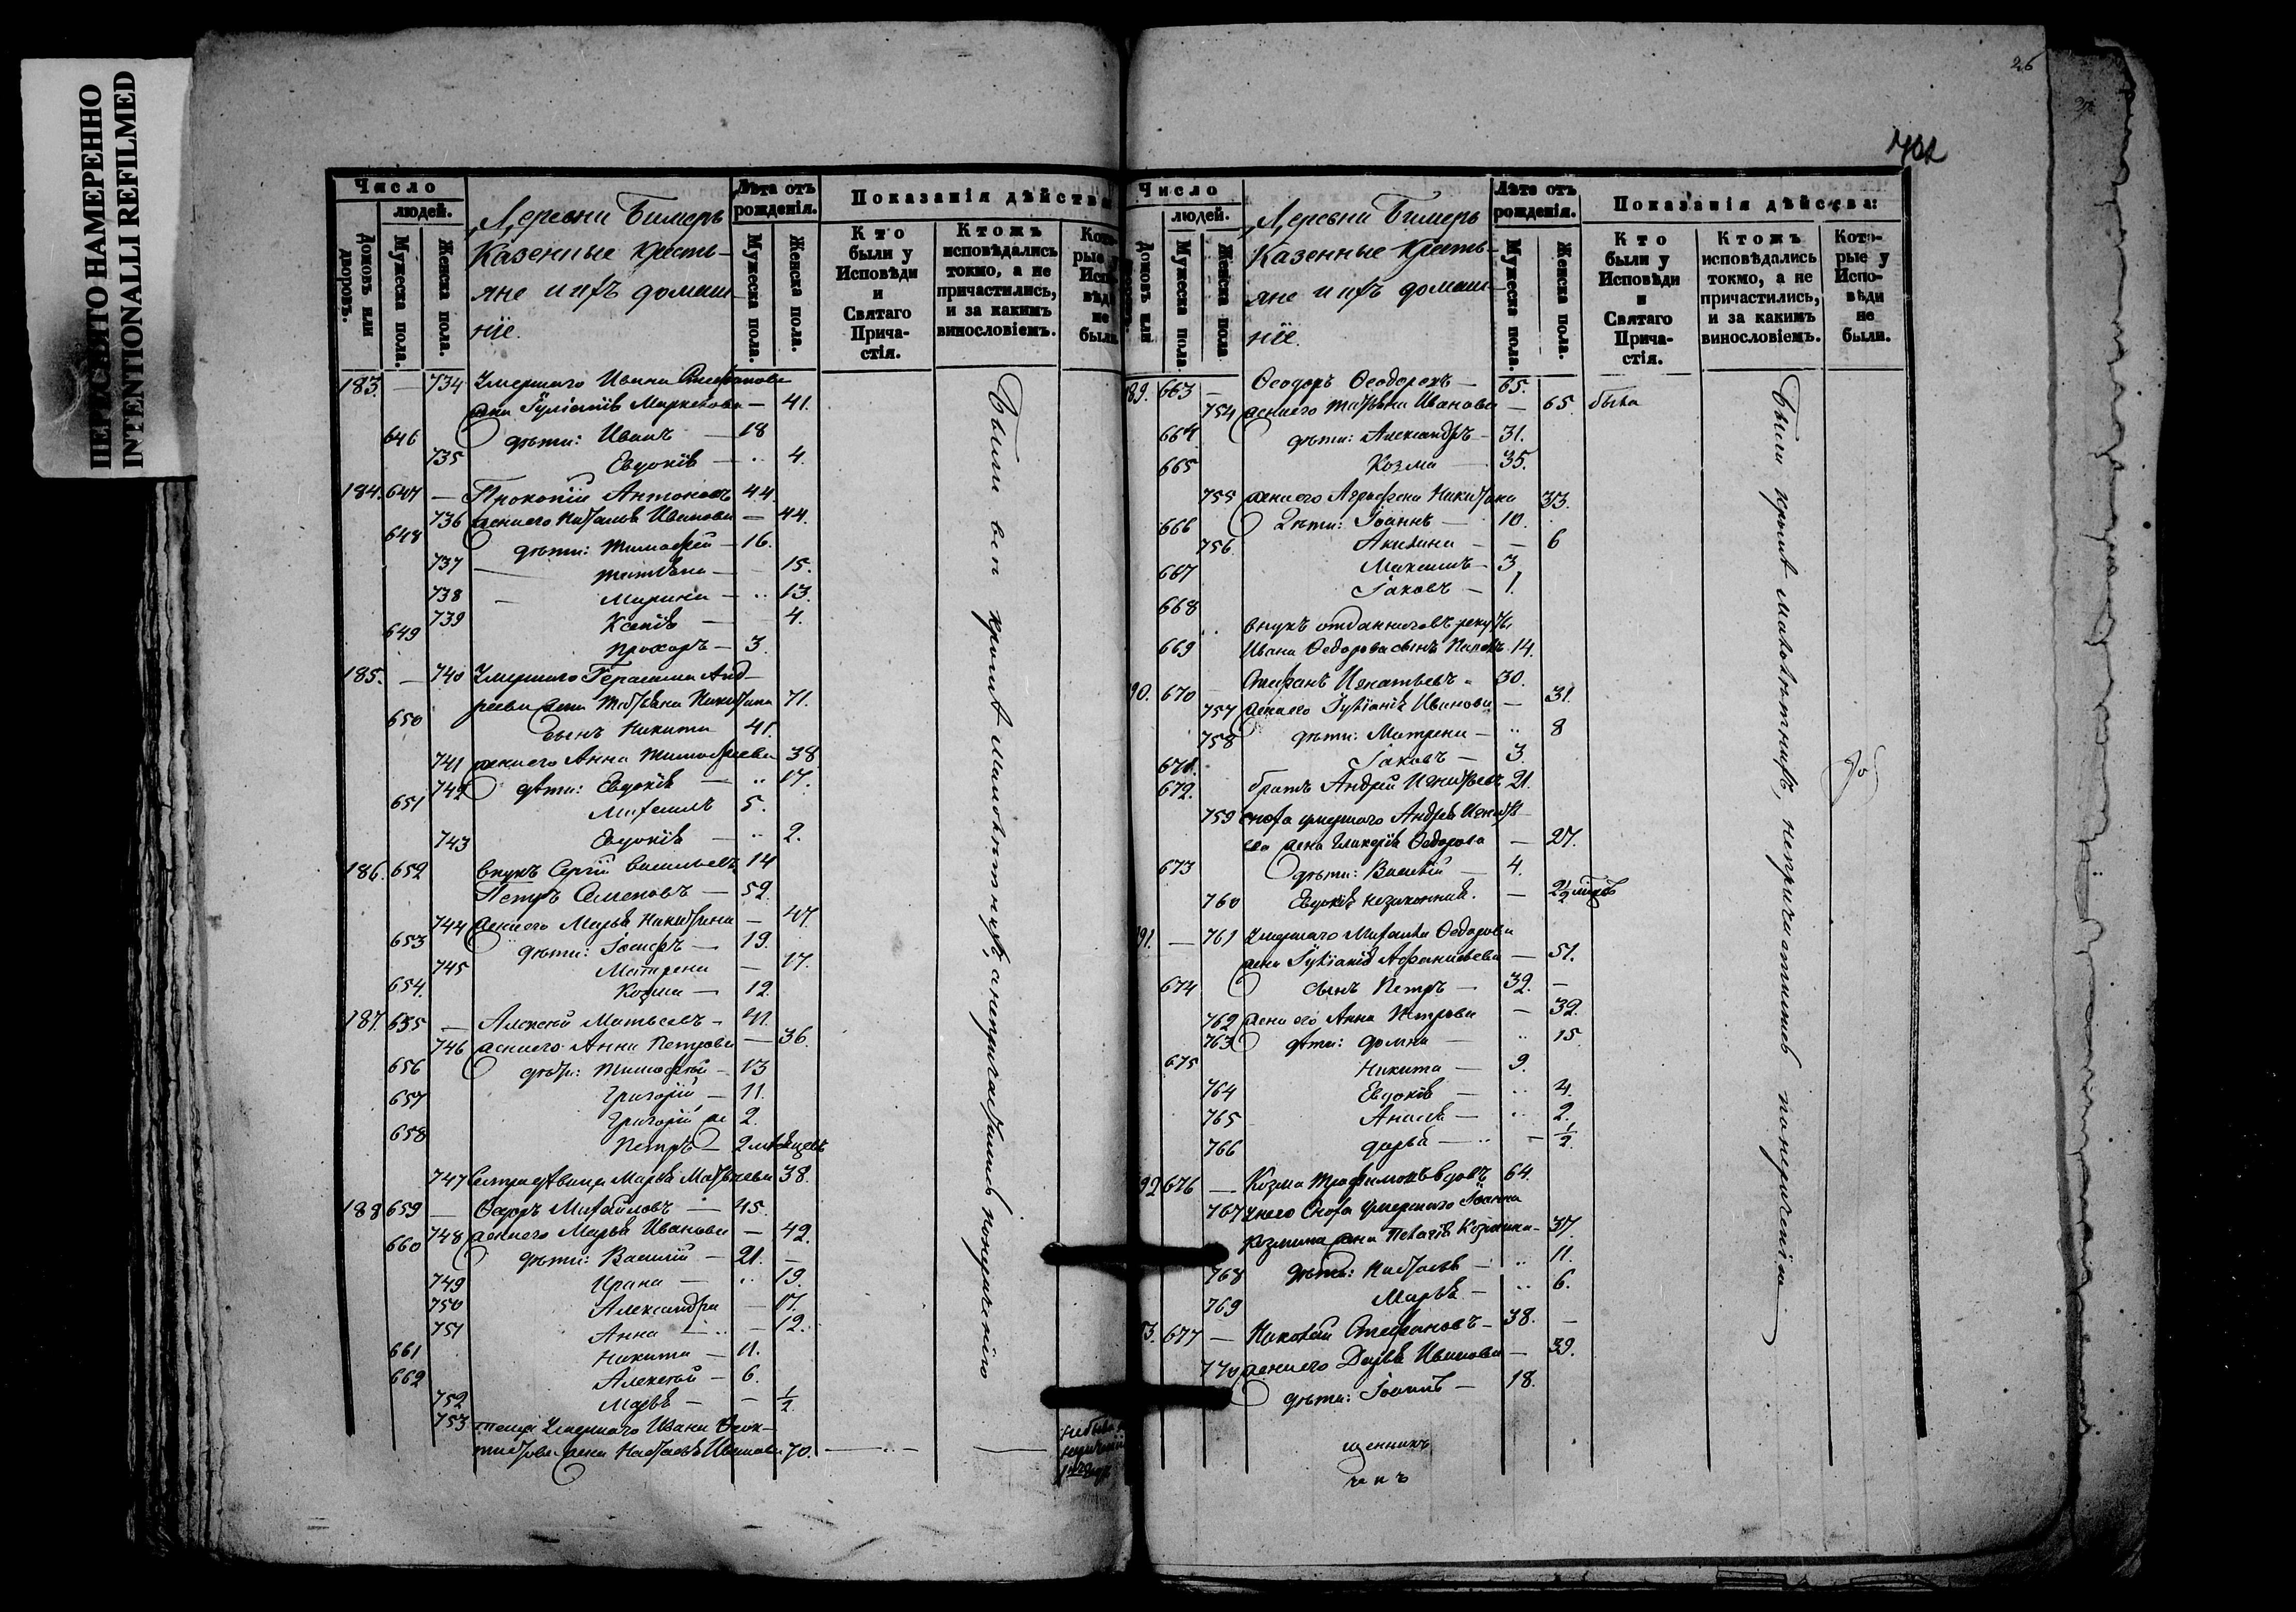 ПЕРЕСНЯТО НАМЕРЕННО
INTENTIONALLI REFILMED
Число
людей.
Домовъ или дворовъ.
Мужеска пола.
Женска пола.
Деревни Бимеръ
Казенные кресть-
яне и ихъ домаш-
ніе.
Лѣта отъ рожденія.
Мужеска пола.
Женска пола.
Показанія дѣйства
Кто были у Исповѣди и Святаго Прича-стія.
Ктожъ исповѣдались токмо, а не причастились, и за какимъ винословіемъ.
183. — 734 Умершаго Ивана Стефанова
жена Іуліанія Маркелова — 41.
646 дѣти: Иванъ — 18
735 Евдокія — 4.
184. 647 — Прокопій Антоновъ 44.
736 жена его Наталья Иванова — 44.
648 дѣти: Тимофей — 16.
737 Татьяна — 15.
738 Марина — 13.
739 Ксенія — 4.
649 Прохоръ — 3.
185. — 740 Умершаго Герасима Анд-
реева жена Татьяна Никитина 71.
650 сынъ Никита 41.
741 жена его Анна Тимофеева 38
742 дѣти: Евдокія — 17.
651 Михаилъ 5.
743 Евдокія — 2.
186. 652 внукъ Сергій Васильевъ 14
Петръ Семеновъ — 59.
744 жена его Марья Никитина — 47.
653 дѣти: Іосифъ — 19.
745 Матрена — 17.
654. Козма — 12.
187. 655 — Алексѣй Матвеевъ — 41.
746 жена его Анна Петрова — 36.
656 дѣти: Тимофей — 13
657 Григорій — 11.
Григорій же 2.
658 Петръ — 2 мѣсяцевъ
747 сестра дѣвица Марья Матвѣева 38.
188 659 — Ѳедоръ Михайловъ — 45.
748 жена его Марья Иванова — 42.
660 дѣти: Василій — 21. —
749 Ирина — 19.
750 Александра — 17.
751 Анна — 12.
661 Никита — 11.
662 Алексѣй — 6.
752 Марья — 1/2
753 теща Умершаго Ивана Ѳеок-
тистова жена Настасья Иванова 70.
Были всѣ кромѣ малолѣтнихъ, а непричастились понерачению
26
Число
людей.
Мужеска пола.
Женска пола
Деревни Бимеръ
Казенные кресть-
яне и ихъ домаш-
ніе.
Лѣта отъ рожденія.
Мужеска пола.
Женска пола.
Показанія дѣйства:
Кто были у Исповѣди и Святаго Прича-стія.
Ктожъ исповѣдались токмо, а не причастились, и за какимъ винословіемъ.
Кото-рые у Испо-вѣди не были.
89. 663 — Ѳеодоръ Ѳеодоровъ — 65.
754 жена его Татьяна Иванова — 65. была
664 дѣти: Александръ — 31.
665 Козма — 35.
755 жена его Аграфена Никитина 33.
666 дѣти: Іоаннъ — 10.
756. Акилина — 6
667 Максимъ — 3
668 Іаковъ — 1.
внукъ отданнаго въ рекруты
669 Ивана Ѳедорова сынъ Павелъ 14.
90. 670 Стефанъ Игнатьевъ 30.
757 жена его Іуліанія Иванова — 31.
758 дѣти: Матрена — 8
671. Іаковъ — 3.
672. братъ Андрей Игнатьевъ 21.
759 сноха умершаго Андрея Игнать-
ева жена Гликерія Ѳедорова — 27.
673 дѣти: Василій — 4.
760 Евдокія незаконная. —
91. — 761 Умершаго Михаила Ѳедорова
жена Іуліанія Афанасьева — 51.
674 сынъ Петръ — 32. —
762 жена его Анна Петрова — 32.
763 дѣти: Домна — 15
675 Никита — 9.
764 Евдокія — 4.
765 — 2.
766 Дарья — 1/2
92 676 — Козма Трофимовъ вдовъ 64.
767 У него Сноха умершаго Іоанна
Козмина жена Пелагія Козмина — 37.
768 дѣти: Настасья — 11.
769 Марья — 6.
3. 677 — Николай Стефановъ — 38. —
770 жена его Дарья Иванова — 39.
дѣти: Іоаннъ — 18.
Были кромѣ малолѣтнихъ, непричастились понерачению
щенникъ